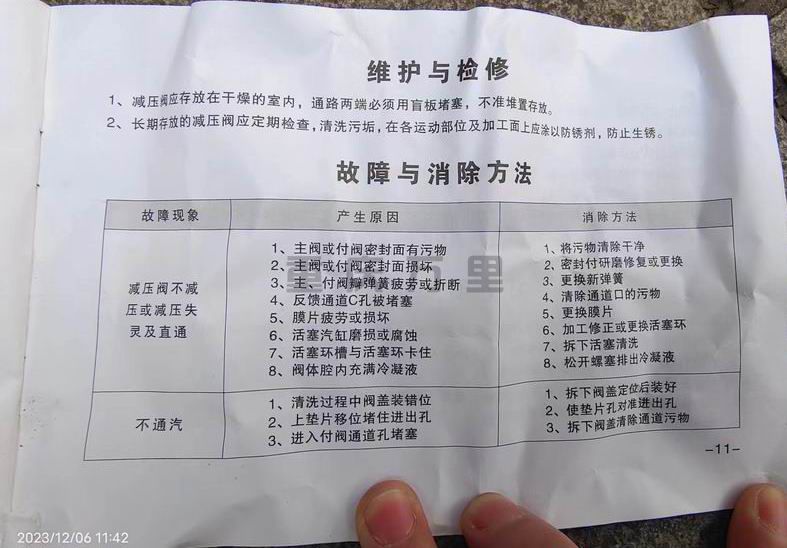 维护与检修
1、减压阀应存放在干燥的室内，通路两端必须用盲板堵塞，不准堆置存放。
2、长期存放的减压阀应定期检查，清洗污垢，在各运动部位及加工面上应涂以防锈剂，防止生锈。
故障与消除方法
故障现象 产生原因 消除方法
减压阀不减
压或减压失
灵及直通
1、主阀或付阀密封面有污物
2、主阀或付阀密封面损坏
3、主、付阀瓣弹簧疲劳或折断
4、反馈通道C孔被堵塞
5、膜片疲劳或损坏
6、活塞汽缸磨损或腐蚀
7、活塞环槽与活塞环卡住
8、阀体腔内充满冷凝液
1、将污物清除干净
2、密封付研磨修复或更换
3、更换新弹簧
4、清除通道口的污物
5、更换膜片
6、加工修正或更换活塞环
7、拆下活塞清洗
8、松开螺塞排出冷凝液
不通汽
1、清洗过程中阀盖装错位
2、上垫片移位堵住进出孔
3、进入付阀通道孔堵塞
1、拆下阀盖定位后装好
2、使垫片孔对准进出孔
3、拆下阀盖清除通道污物
-11-
2023/12/06 11:42